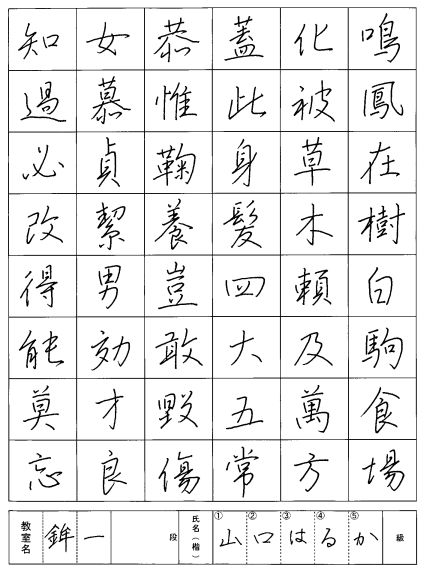 鳴鳳在樹白駒食場
化被草木頼及萬方
蓋此身髪四大五常
恭惟鞠養豈敢毀傷
女慕貞絜男効才良
知過必改得能莫忘
教室名 鉾一 段 氏名(楷) ①山 ②口 ③は ④る ⑤か 級